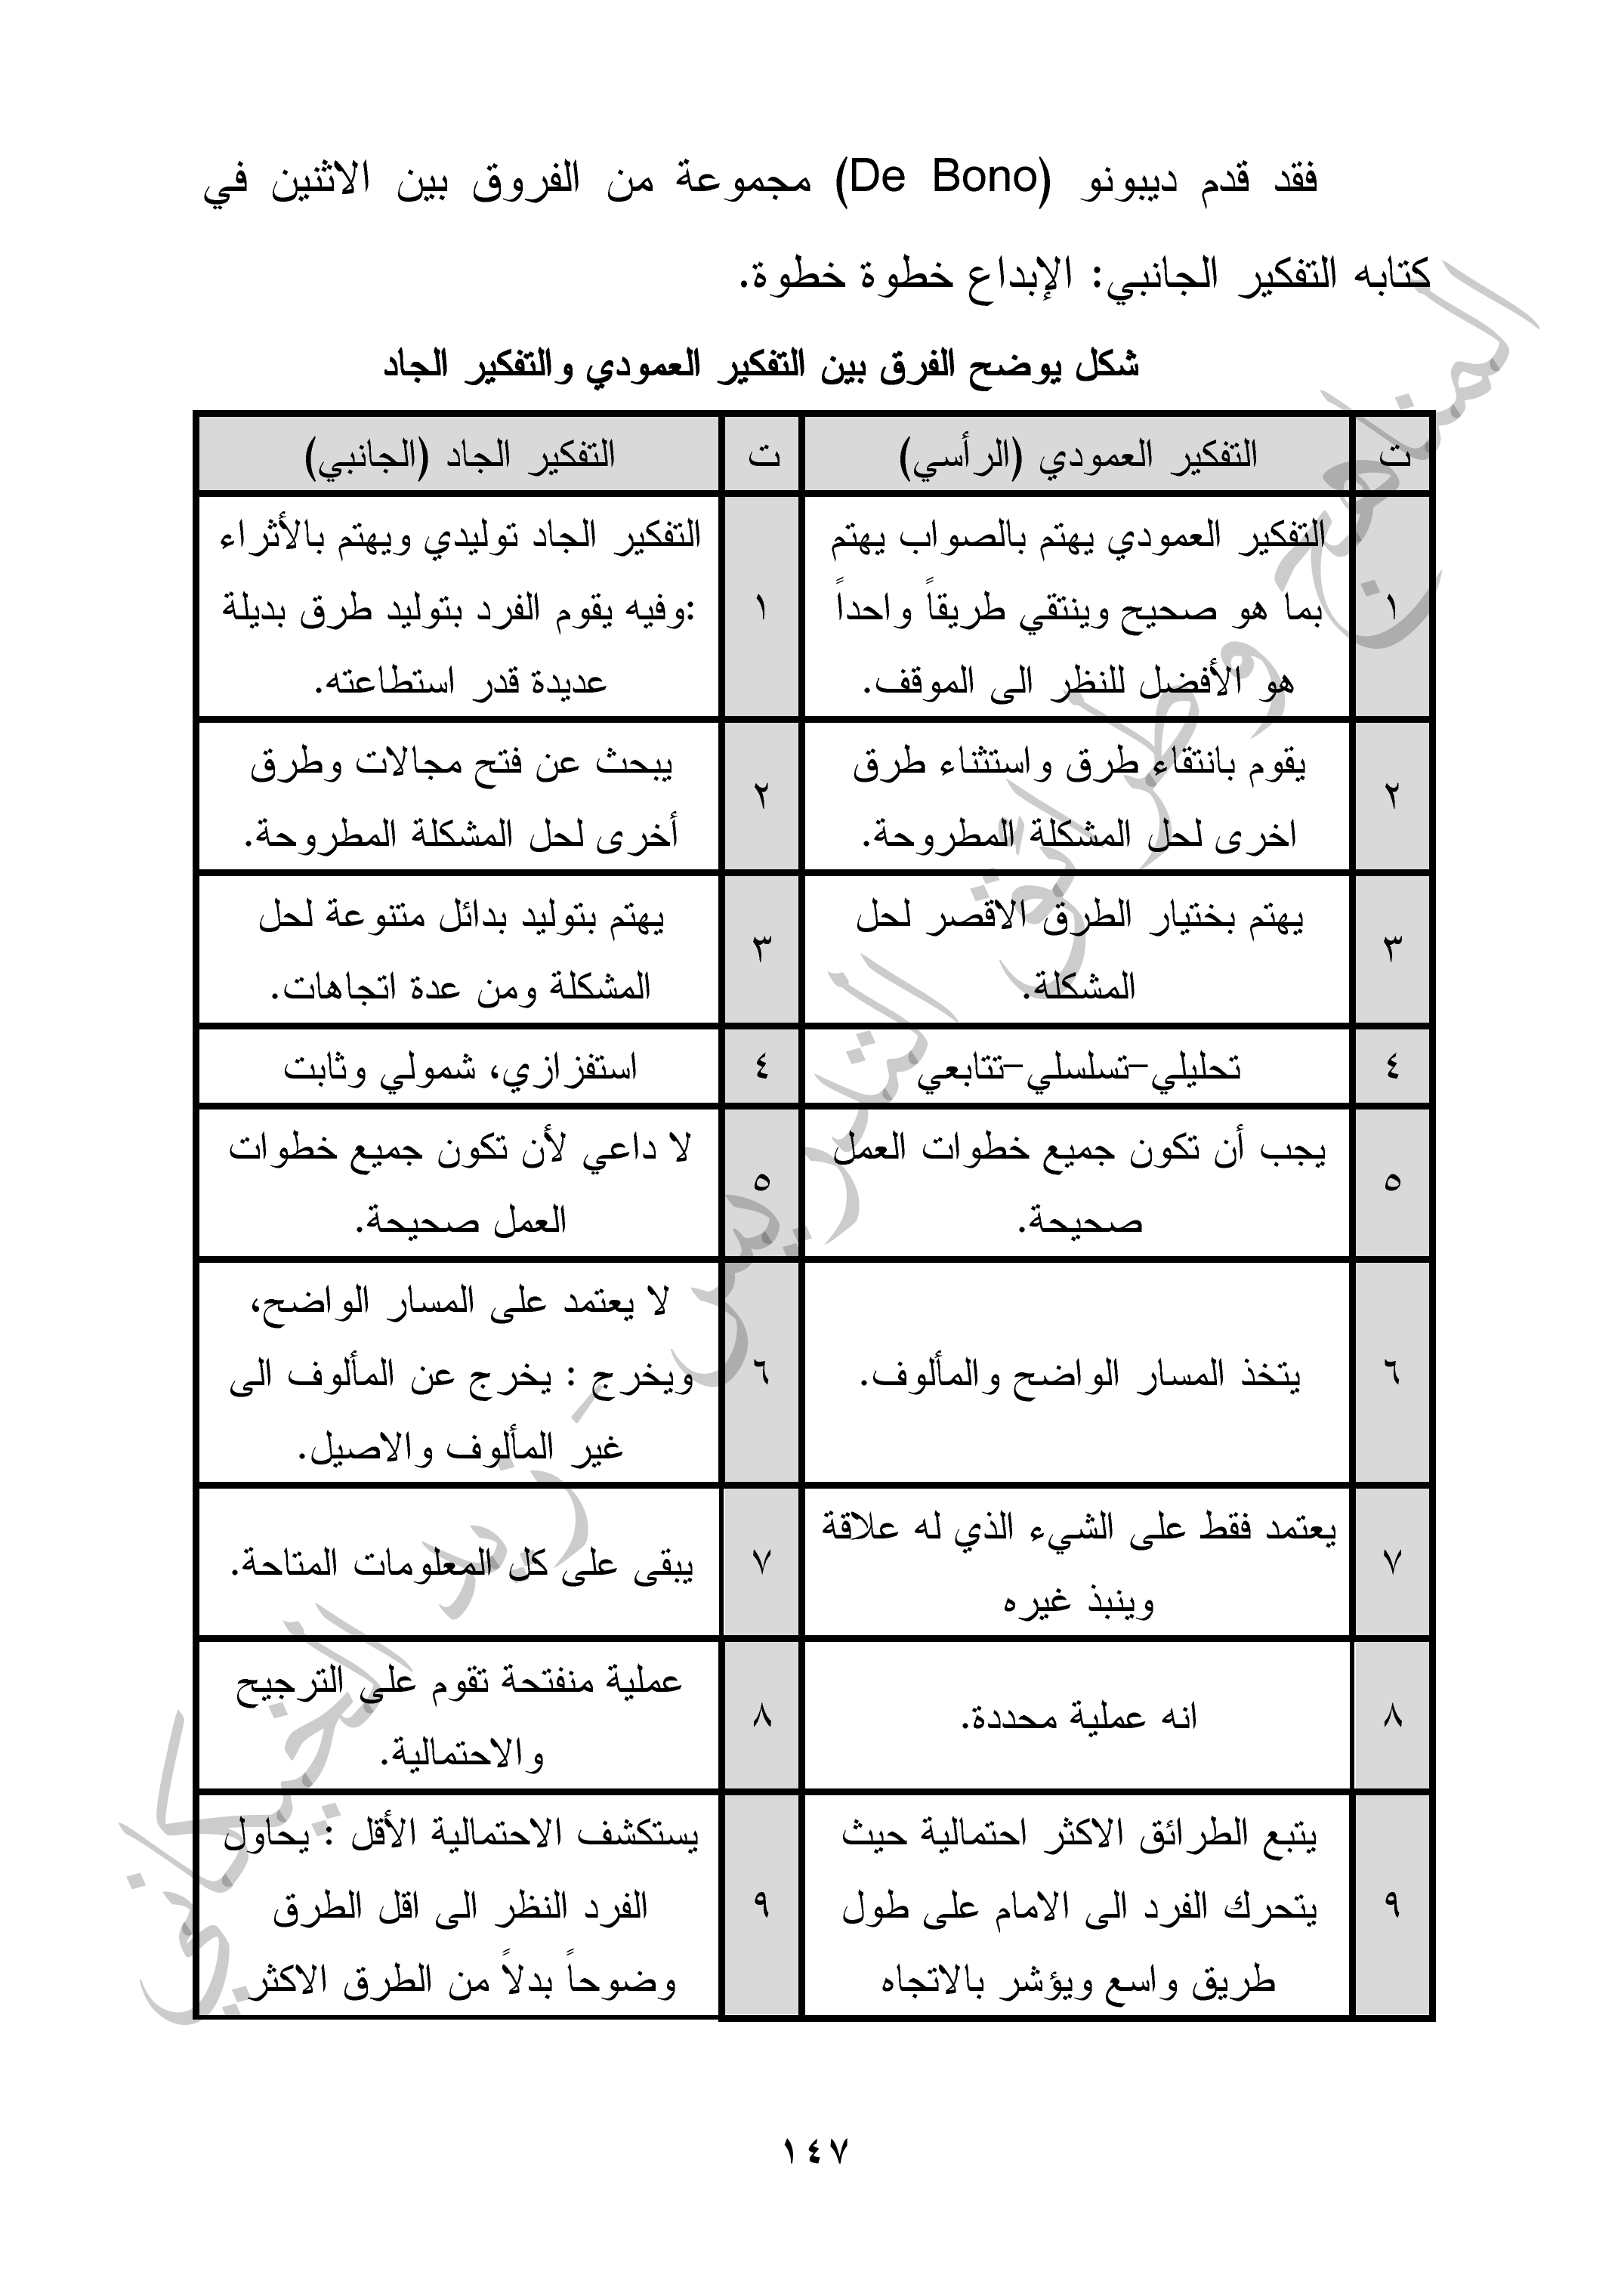 فقد قدم ديبونو (De Bono) مجموعة من الفروق بين الاثنين في
كتابه التفكير الجانبي: الإبداع خطوة خطوة.
شكل يوضح الفرق بين التفكير العمودي والتفكير الجاد
ت
التفكير العمودي (الرأسي)
ت
التفكير الجاد (الجانبي)
١
التفكير العمودي يهتم بالصواب يهتم
بما هو صحيح وينتقي طريقاً واحداً
هو الأفضل للنظر الى الموقف.
١
التفكير الجاد توليدي ويهتم بالأثراء
:وفيه يقوم الفرد بتوليد طرق بديلة
عديدة قدر استطاعته.
٢
يقوم بانتقاء طرق واستثناء طرق
اخرى لحل المشكلة المطروحة.
٢
يبحث عن فتح مجالات وطرق
أخرى لحل المشكلة المطروحة.
٣
يهتم بختيار الطرق الاقصر لحل
المشكلة.
٣
يهتم بتوليد بدائل متنوعة لحل
المشكلة ومن عدة اتجاهات.
٤
تحليلي-تسلسلي-تتابعي
٤
استفزازي، شمولي وثابت
٥
يجب أن تكون جميع خطوات العمل
صحيحة.
٥
لا داعي لأن تكون جميع خطوات
العمل صحيحة.
٦
يتخذ المسار الواضح والمألوف.
٦
لا يعتمد على المسار الواضح،
ويخرج : يخرج عن المألوف الى
غير المألوف والاصيل.
٧
يعتمد فقط على الشيء الذي له علاقة
وينبذ غيره
٧
يبقى على كل المعلومات المتاحة.
٨
انه عملية محددة.
٨
عملية منفتحة تقوم على الترجيح
والاحتمالية.
٩
يتبع الطرائق الاكثر احتمالية حيث
يتحرك الفرد الى الامام على طول
طريق واسع ويؤشر بالاتجاه
٩
يستكشف الاحتمالية الأقل : يحاول
الفرد النظر الى اقل الطرق
وضوحاً بدلاً من الطرق الاكثر
١٤٧
المناهج وطرائق التدريس - زيد الخيكاني